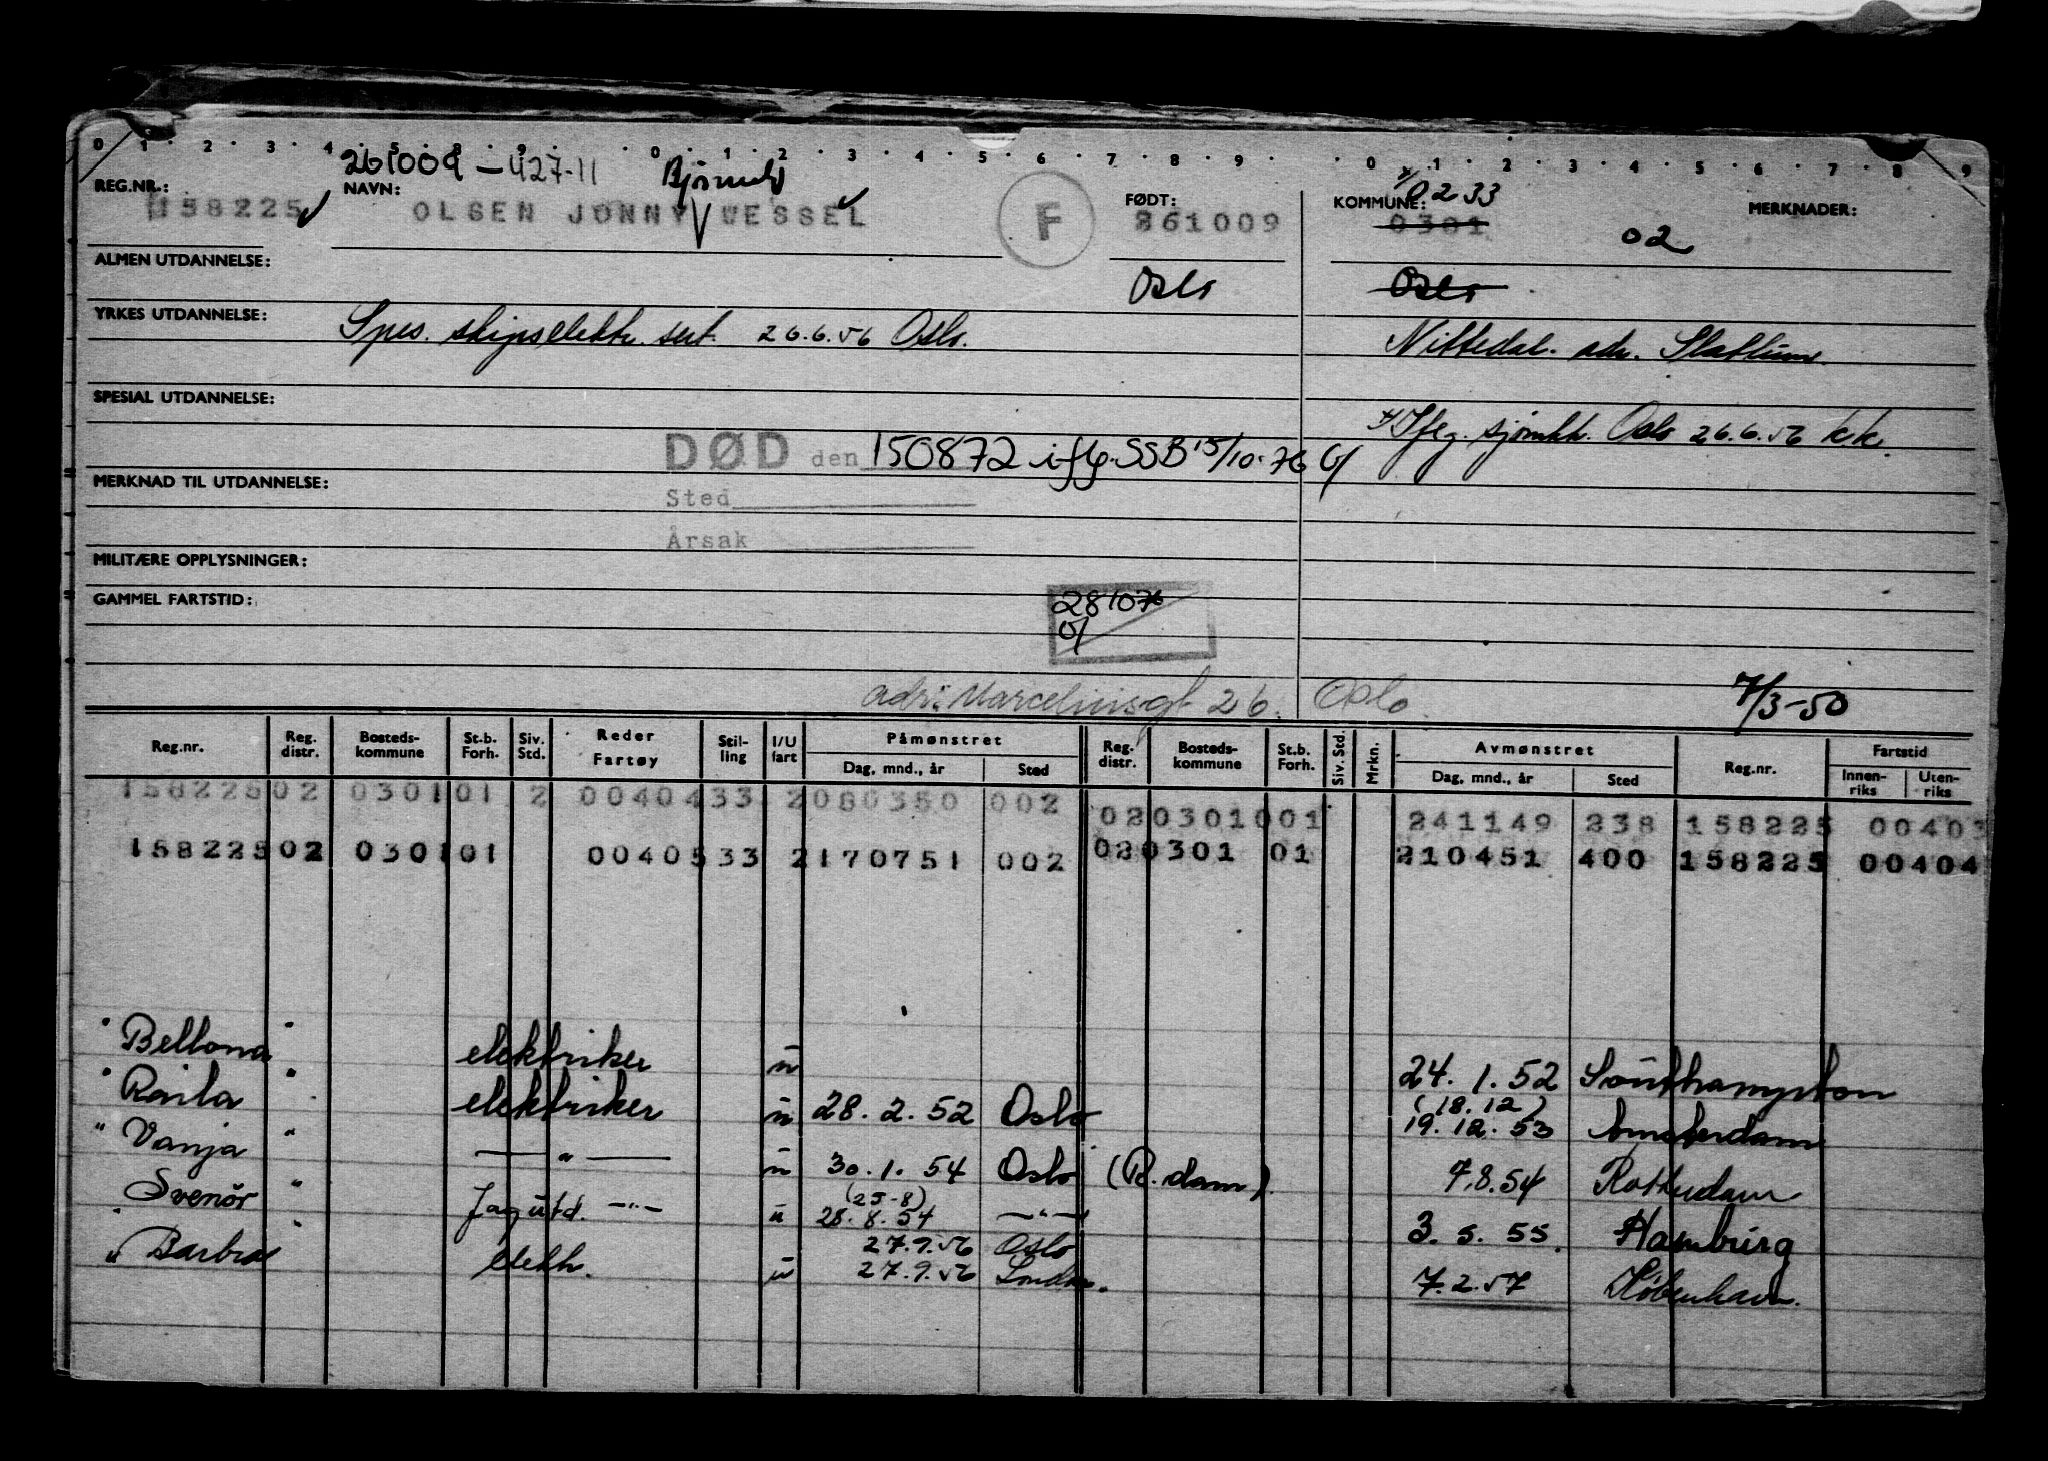 0 · 1 · 2 · 3 · 4 · 5 · 8 · 9 · 0 · 1 · 2 · 3 · 4 · 5 · 6 · 7 · 8 · 9 · 0 · 1 · 2 · 3 · 4 · 5 · 6 · 7 · 8 · 9
261009 – 427-11 Bjørnulf
REG.NR.: NAVN: FØDT: KOMMUNE: 0233 MERKNADER:
158225 OLSEN JONNY WESSEL F 261009 0301 02
ALMEN UTDANNELSE: Oslo Oslo
YRKES UTDANNELSE: Spes. skipselektr. sert. 26.6.56 Oslo. Nittedal. adr. Slattum
SPESIAL UTDANNELSE: x) Ifg. sjømkt. Oslo 26.6.56 kk.
DØD den 150872 iflg. SSB 15/10-76
MERKNAD TIL UTDANNELSE: Sted
Årsak
MILITÆRE OPPLYSNINGER:
GAMMEL FARTSTID: 281076
adr: Marceliusgt 26. Oslo 7/3-50
Reg.nr. Reg. distr. Bosteds-kommune St.b. Forh. Siv. Std. Reder Fartøy Stil-ling I/U fart Påmønstret Reg-distr. Bosteds-kommune St.b. Forh. Siv. Std. Mrkn. Avmønstret Reg.nr. Fartstid
Dag, mnd., år Sted Dag, mnd., år Sted Innen-riks Uten-riks
158225 02 0301 01 2 00404 33 2 080350 002 02 0301 001 241149 238 158225 00403
158225 02 0301 01 00405 33 2 170751 002 02 0301 01 210451 400 158225 00404
" Bellona " elektriker u 24. 1. 52 Southampton
" Raila " elektriker u 28. 2. 52 Oslo (18.12) 19. 12. 53 Amsterdam
" Vanja " — " — u 30. 1. 54 Oslo (R.dam). 7.8.54 Rotterdam
" Svenör " Jag utd. — " — u (25-8) 28. 8. 54 — " — 3. 5. 55. Hamburg
27.9.56 Oslo
" Barbro elektr. u 27.9.56 London. 7.2.57 København.